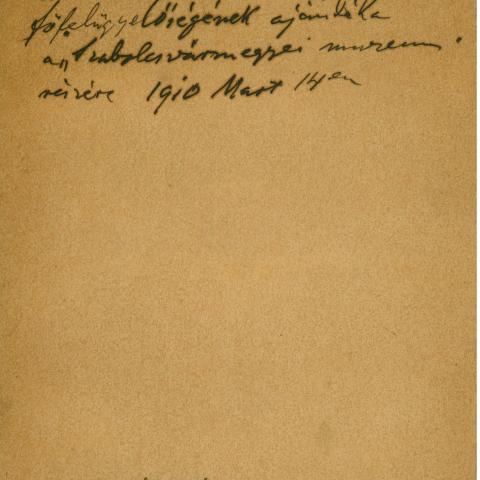 főfelügyelőségének ajándéka
a „Szabolcsvármegyei muzeum"
részére 1910 Mart 14en